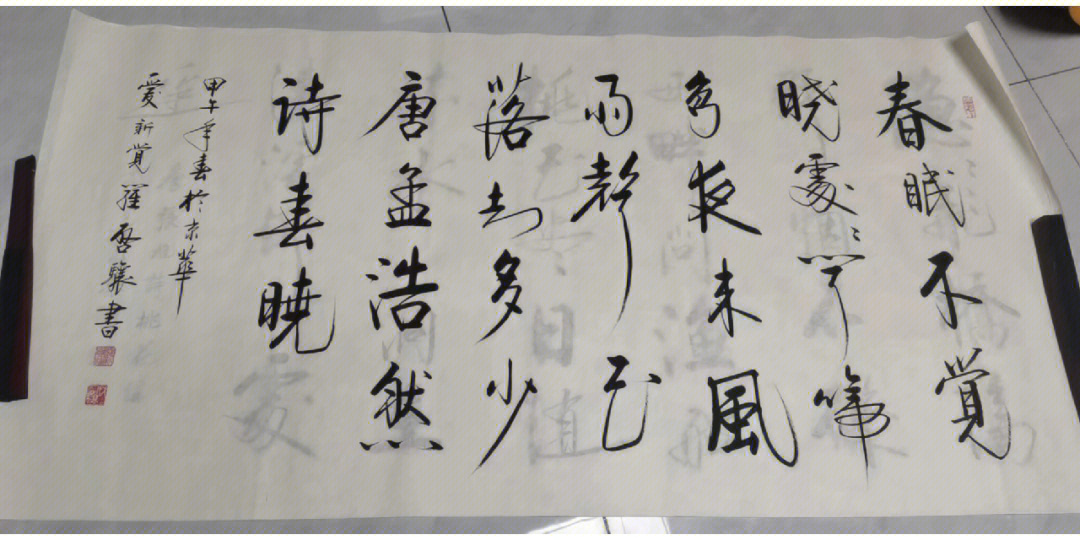 春眠不覺
曉處々聞啼
鳥夜来風
雨聲花
落知多少
唐孟浩然
詩春曉
甲午年春於京華
愛新覺羅啓驤書